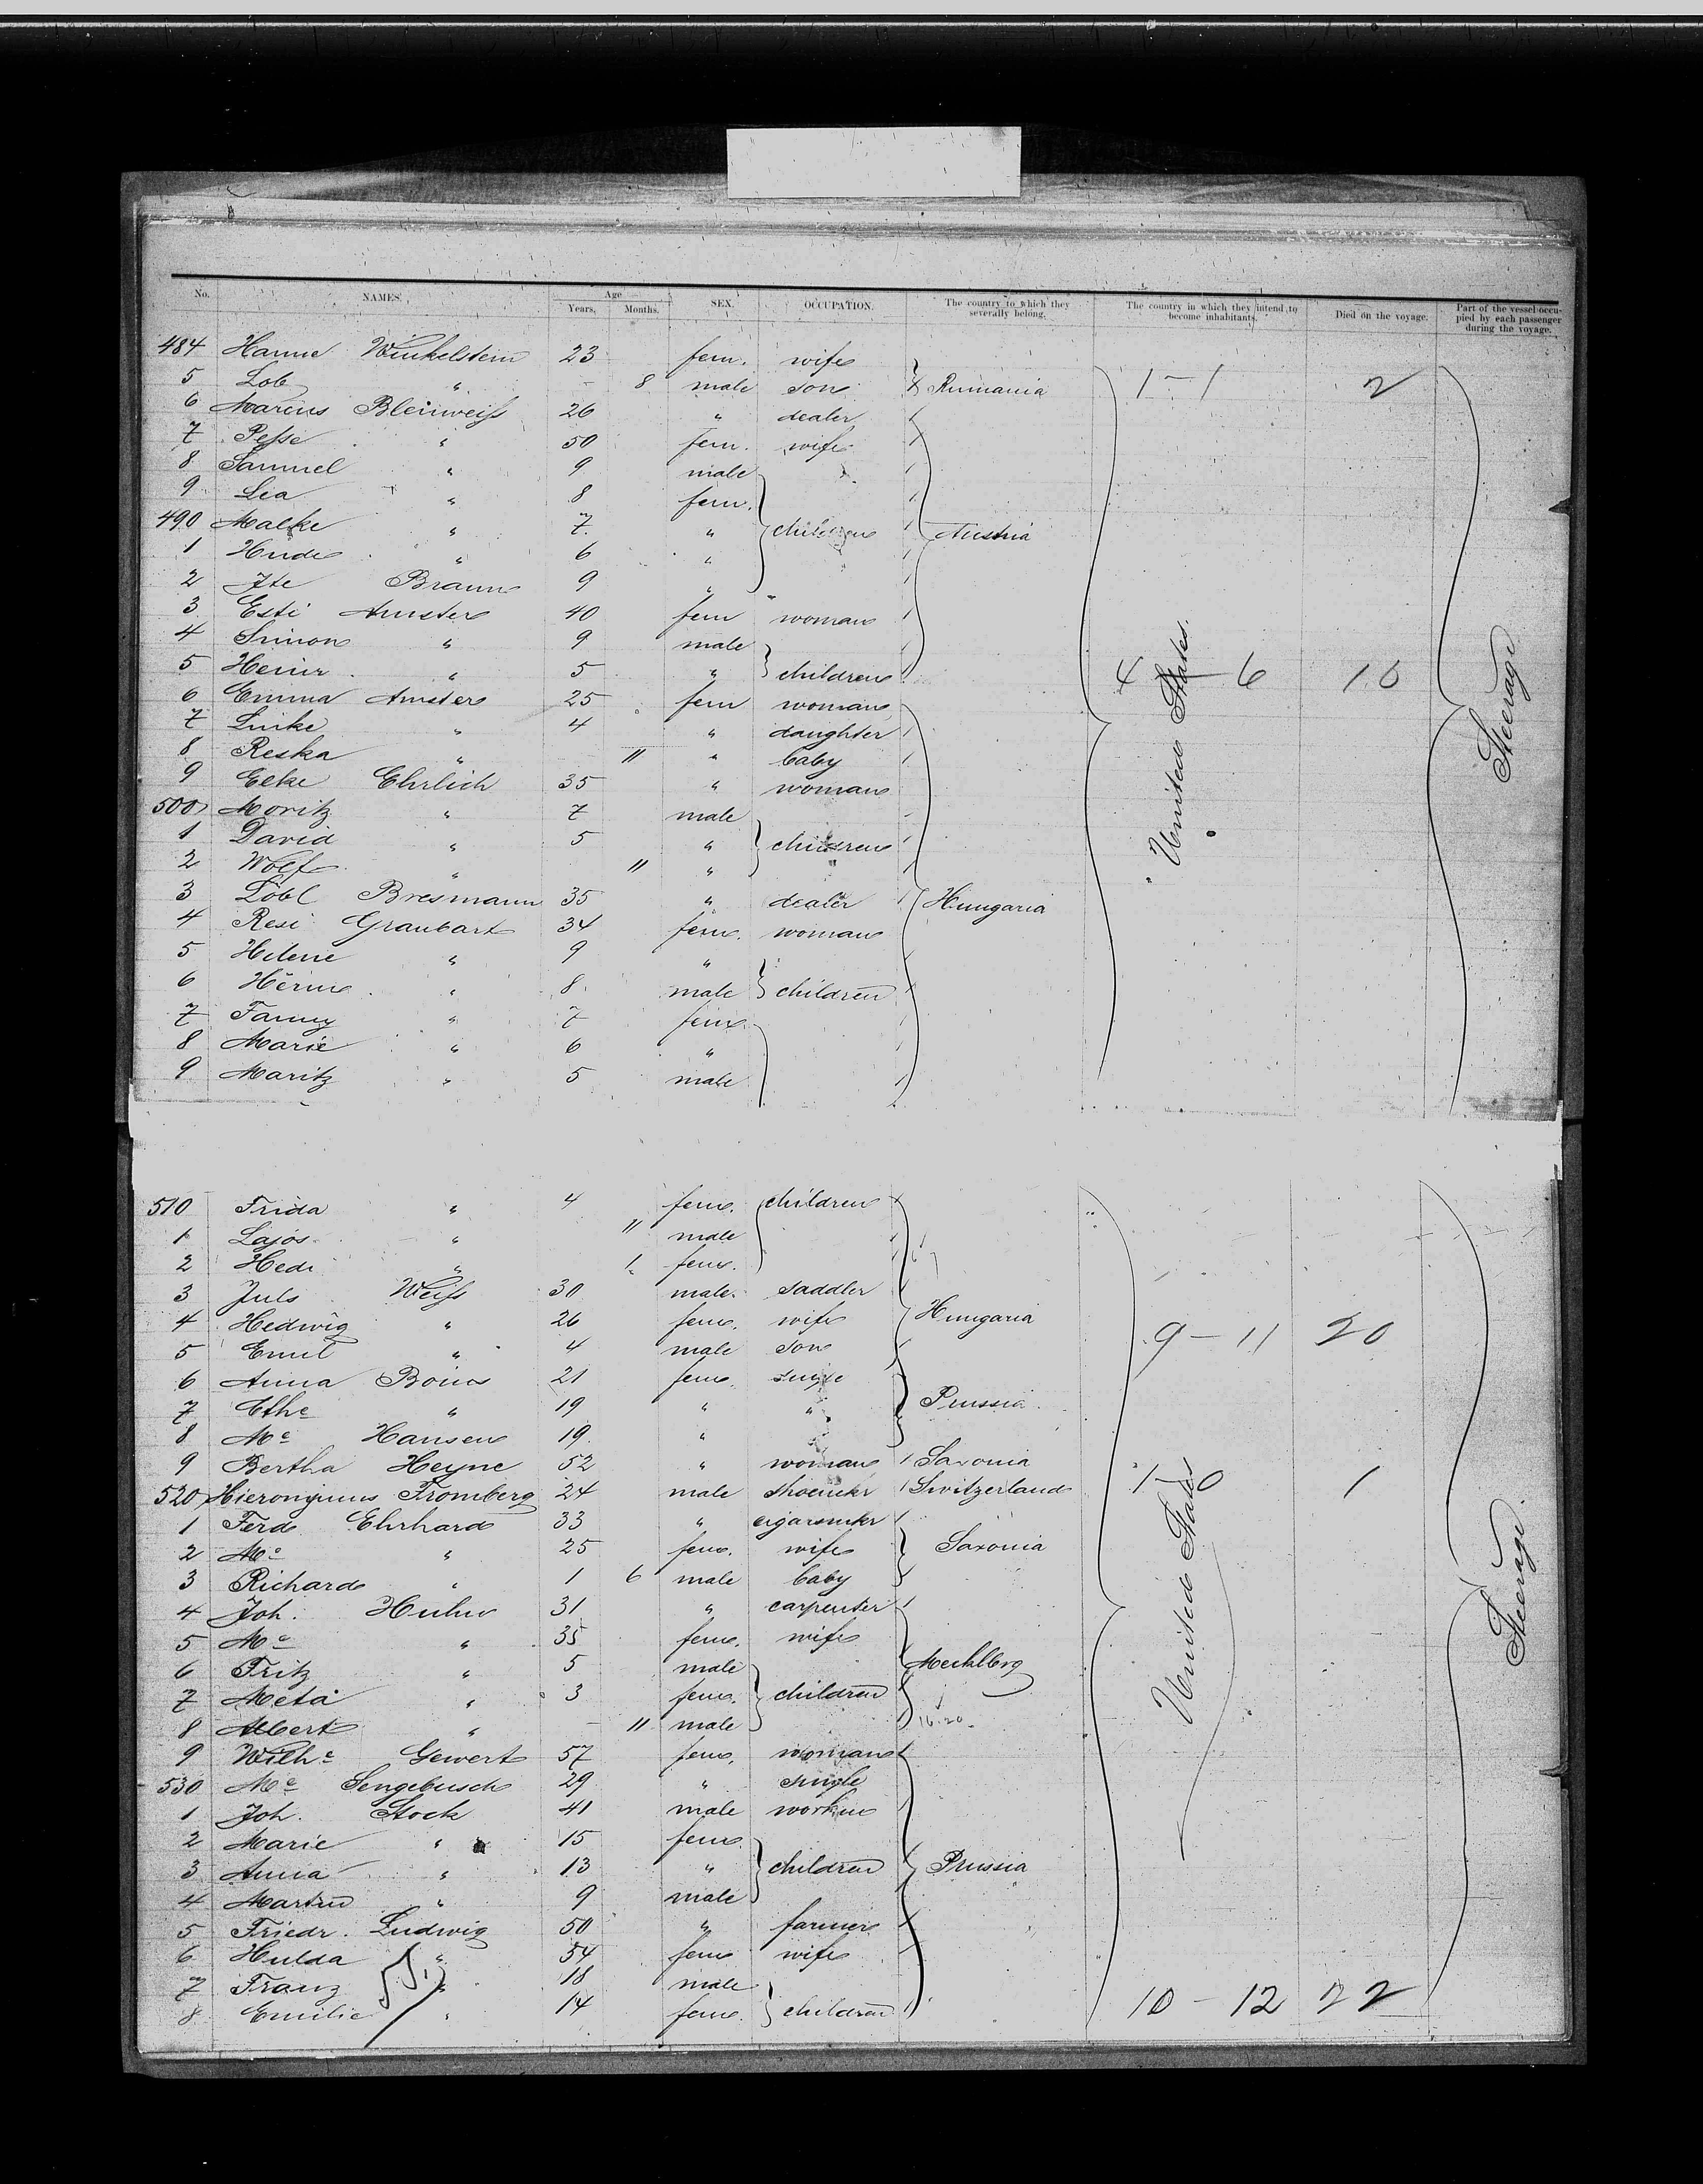 No. NAMES. Age Years. Months. SEX. OCCUPATION. The country to which they severally belong. The country in which they intend to become inhabitants. Died on the voyage. Part of the vessel occupied by each passenger during the voyage.
484 Hanne Winkelstein 23 fem. wife
5 Lob " - 8 male son Rumania 1 - 1 2
6 Marcus Bleiweiß 26 " dealer
7 Peße " 50 fem. wife
8 Samuel " 9 male
9 Lea " 8 fem.
490 Malke " 7 " children Austria
1 Hude " 6 "
2 Ite Braun 9 "
3 Esti Amster 40 fem woman
4 Simon " 9 male
5 Heinr " 5 " children 4 - 6 10
6 Emma Amster 25 fem woman
7 Linke " 4 " daughter
8 Reska " 11 " baby
9 Elke Ehrlich 35 " woman
500 Moritz " 7 male
1 David " 5 " children
2 Wolf " 11 "
3 Löbl Bresmann 35 " dealer Hungaria
4 Resi Graubart 34 fem. woman
5 Helene " 9 "
6 Herm " 8 male children
7 Fanny " 7 fem.
8 Marie " 6 "
9 Maritz " 5 male
United States.
Steerage
510 Frida " 4 fem. children
1 Lajos " 11 male
2 Hedi " 1 fem.
3 Juls Weiß 30 male. saddler
4 Hedwig " 26 fem. wife Hungaria 9 - 11 20
5 Emil " 4 male son
6 Anna Boius 21 fem. single
7 Ethe " 19 " " Prussia
8 Me Hansen 19 "
9 Bertha Heyne 52 " woman Saxonia
520 Hieronymus Fromberg 24 male shoemkr Switzerland 1 0 1
1 Ferd Ehrhard 33 " cigarmkr
2 Me " 25 fem. wife Saxonia
3 Richard " 1 6 male baby
4 Joh. Huhn 31 " carpenter
5 Me " 35 fem. wife
6 Fritz " 5 male Mecklbrg
7 Meta " 3 fem. children
8 Albert " - 11 male 16-20
9 Wilhe Gewert 57 fem. woman
530 Me Sengebusch 29 " single
1 Joh. Stock 41 male workm
2 Marie " 15 fem
3 Anna " 13 " children Prussia
4 Martin " 9 male
5 Friedr. Ludwig 50 " farmer
6 Hulda " 54 fem wife
7 Franz " 18 male
8 Emilie " 14 fem. children 10 - 12 22
55
United States
Steerage